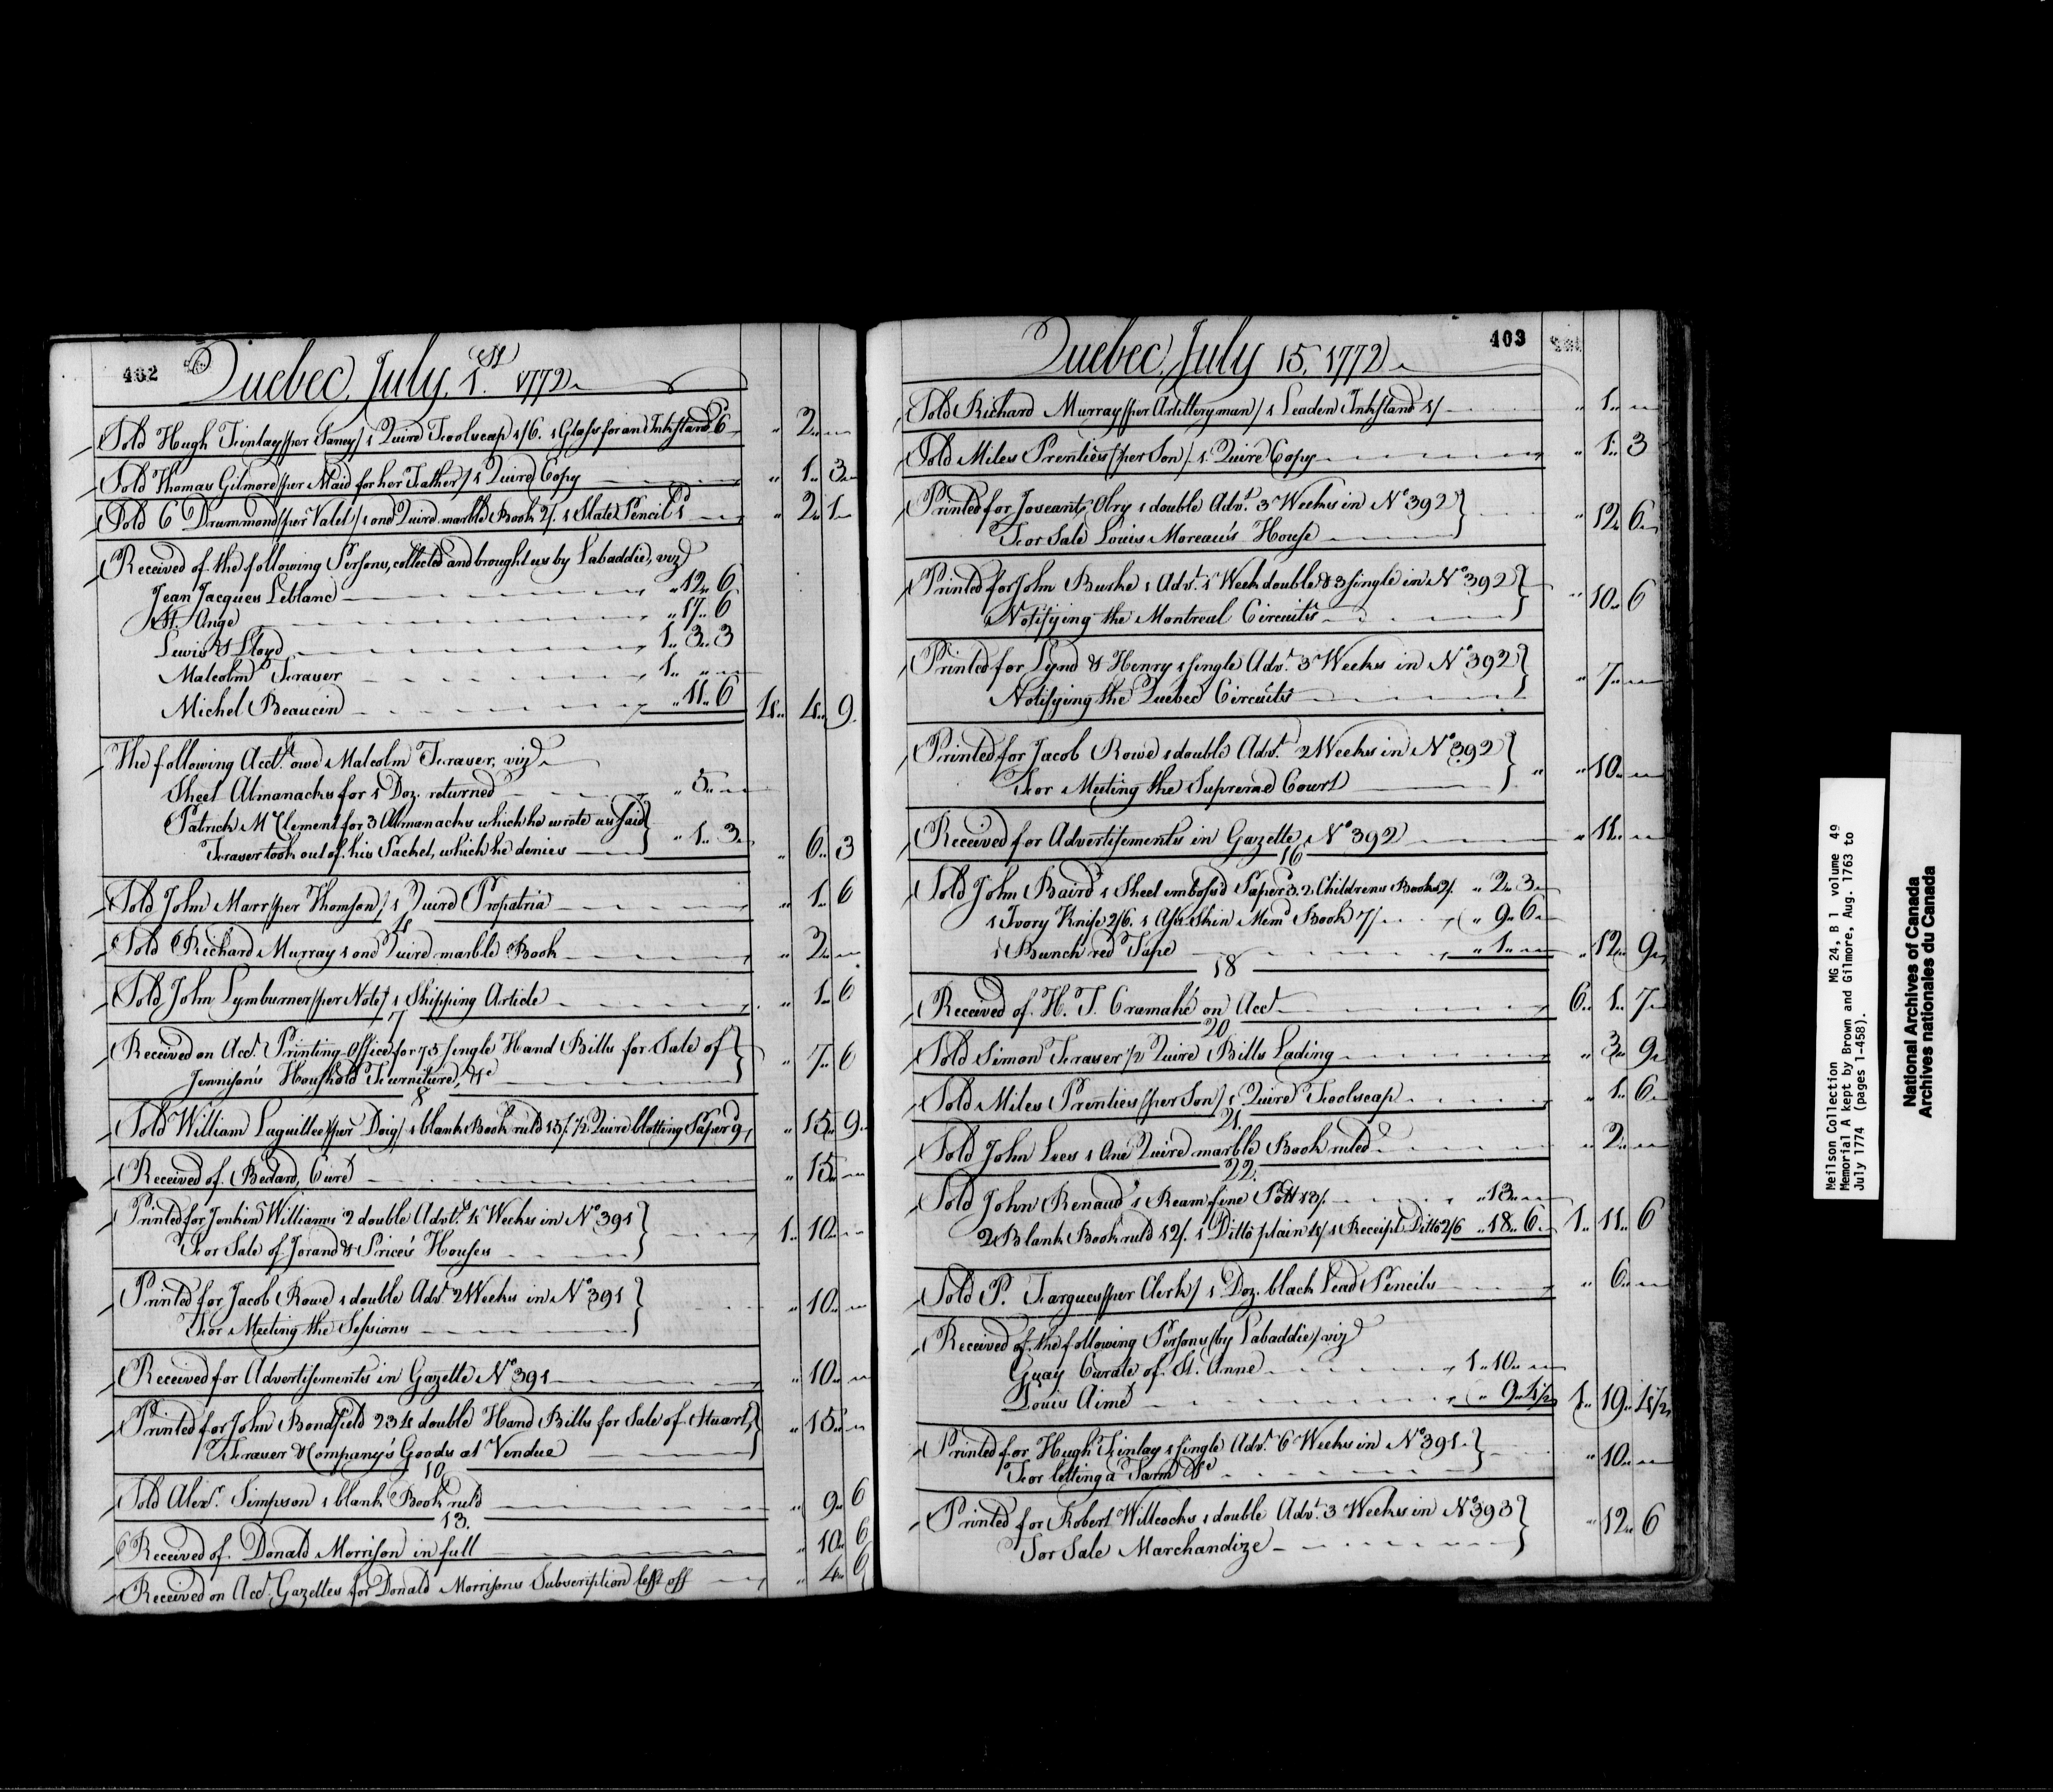 402
Quebec, July, 1.st 1772
Sold Hugh Finlay /per Saney/ 1 Quire Foolscap 1/6. 1 Glass for an Inkstand 6 " 2.. --
Sold Thomas Gilmore /per Maid for her Father/ 1 Quire Copy " 1.. 3
Sold C Drummond /per Valet/ 1 one Quire marble Book 2/. 1 Slate Pencil 1 " 2.. 1
Received of the following Persons, collected and brought us by Labaddie, viz
Jean Jacques Leblanc " 12.. 6
St. Ange " 17.. 6
Lewis & Lloyd 1.. 3.. 3
Malcolm Fraser 1.. " --
Michel Beaucin " 11.. 6 4.. 4.. 9
The following Accts. owe Malcolm Fraser, viz
Sheet Almanacks for 1 Doz. returned " 5.. --
Patrick McClement for 3 Almanacks which he wrote us said } " 1.. 3
Fraser took out of his Packet, which he denies " 6.. 3
Sold John Marr /per Thomson/ 1 Quire Propatria " 1.. 6
4
Sold Richard Murray 1 one Quire marble Book " 2.. --
Sold John Lymburner /per Note/ 1 Shipping Article " 1.. 6
7
Received on Acct. Printing-Office for 75 single Hand Bills for Sale of } " 7.. 6
Jennison's Houshold Furniture, &c
8
Sold William Laguillee /per Doig/ 1 blank Book ruld 15/. 1/2 Quire blotting Paper 9 " 15.. 9
Received of Bedard, Curé " 15.. --
Printed for Jenkin Williams 2 double Advts. 4 Weeks in No. 391 } 1.. 10.. --
For Sale of Jorand & Price's Houses
Printed for Jacob Rowe 1 double Advt. 2 Weeks in No. 391 } " 10.. --
For Meeting the Sessions
Received for Advertisements in Gazette No. 391 " 10.. --
Printed for John Bondfield 234 double Hand Bills for Sale of Stuart, } " 15.. --
Fraser & Company's Goods at Vendue
10
Sold Alexr. Simpson 1 blank Book ruld " 9.. 6
13.
Received of Donald Morrison in full " 10.. 6
Received on Acct. Gazettes for Donald Morrisons Subscription left off " 4.. 6
403
Quebec, July 15, 1772
Sold Richard Murray /per Artilleryman/ 1 Leaden Inkstand 1/ " 1.. --
Sold Miles Prenties /per Son/ 1 Quire Copy " 1.. 3
Printed for Joseant Olry 1 double Advt. 3 Weeks in No. 392 } " 12.. 6
For Sale Louis Moreau's House
Printed for John Burke 1 Advt. 1 Week double & 3 single in No. 392 } " 10.. 6
Notifying the Montreal Circuits
Printed for Lynd & Henry 1 single Advt. 3 Weeks in No. 392 } " 7.. --
Notifying the Quebec Circuits
Printed for Jacob Rowe 1 double Advt. 2 Weeks in No. 392 } " 10.. --
For Meeting the Supreme Court
Received for Advertisements in Gazette No. 392 " 11.. --
16
Sold John Baird 1 Sheet emboss'd Paper 3. 2 Childrens Books 2/. " 2.. 3
1 Ivory Knife 2/6. 1 Ass Skin Mem. Book 7/ " 9.. 6
1 Bunch red Tape " 1.. -- " 12.. 9
18
Received of H. T. Cramahé on Acct 6.. 1.. 7
20
Sold Simon Fraser 1/2 Quire Bills Lading " 3.. 9
Sold Miles Prenties /per Son/ 1 Quire Foolscap " 1.. 6
21.
Sold John Lees 1 One Quire marble Book ruled " 2.. --
22.
Sold John Renaud 1 Ream fine Pott 13/. " 13.. --
2 Blank Book ruld 12/. 1 Ditto plain 4/ 1 Receipt Ditto 2/6 " 18.. 6 1.. 11.. 6
Sold P. Fargues /per Clerk/ 1 Doz. black Lead Pencils " 6.. --
Received of the following Persons /by Labaddie/ viz
Guay Curate of St. Anne 1.. 10.. --
Louis Aimé " 9.. 4 1/2 1.. 19.. 4 1/2
Printed for Hugh Finlay 1 single Advt. 6 Weeks in No. 391 } " 10.. --
For letting a Farm &c
Printed for Robert Willcocks 1 double Advt. 3 Weeks in No. 393 } " 12.. 6
For Sale Marchandize
Neilson Collection MG 24, B 1 volume 49
Memorial A kept by Brown and Gilmore, Aug. 1763 to
July 1774 (pages 1-458).
National Archives of Canada
Archives nationales du Canada